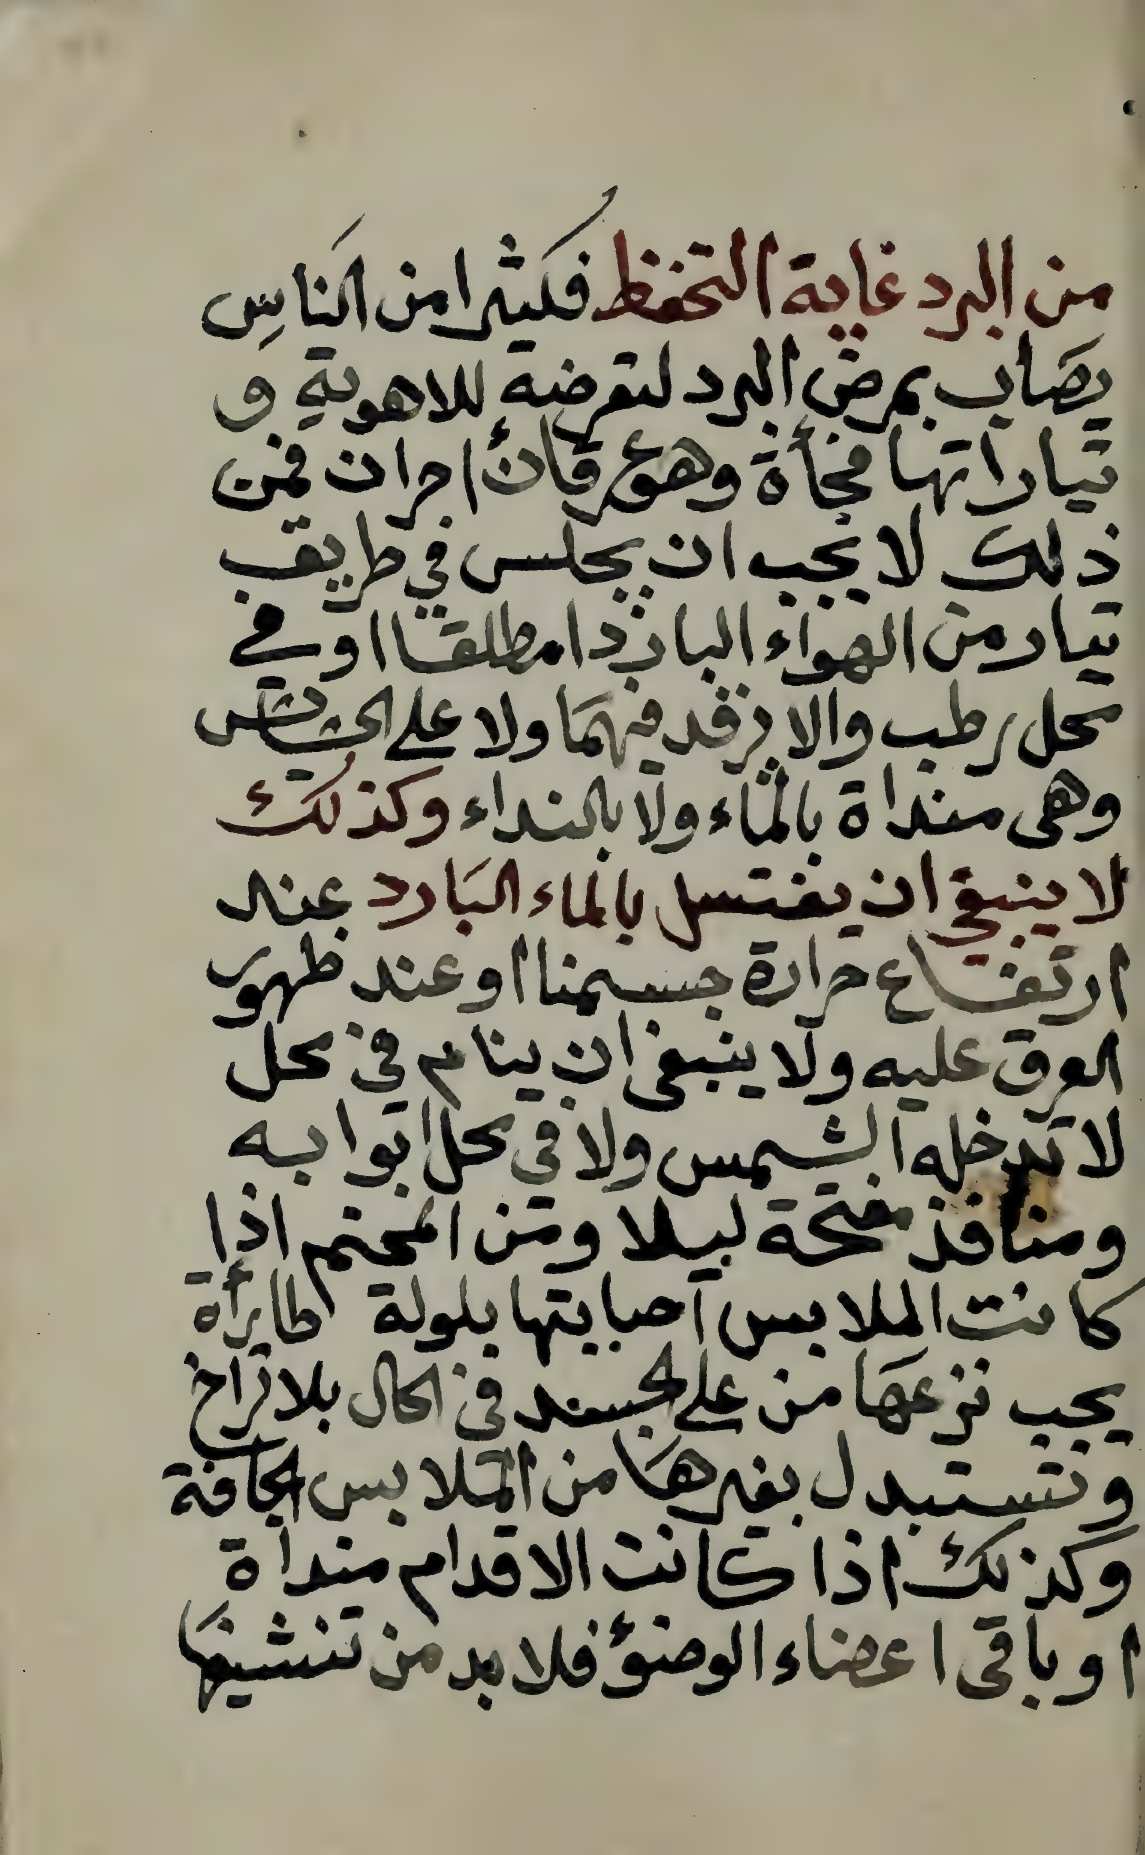 من البرد غاية التحفظ فكثيرا من الناس
يصاب بمرض البرد لتعرضه للاهوية و
تياراتها فجأة وهو عرقان اجران فمن
ذلك لا يجب ان يجلس في طريق
تيار من الهواء البارد دا مطلقا او في
محل رطب والا يرقد فيهما ولا على الحشائش
وهى منداة بالماء ولا بالنداء وكذلك
لا ينبغي ان يغتسل بالماء البارد عند
ارتفاع حرارة جسمنا او عند ظهور
العرق عليه ولا ينبغى ان ينام في محل
لا تدخله الشمس ولا فى محل ابوابه
ومنافذ مفتحة ليلا ومن المحتم اذا
كانت الملابس اصابتها بلولة طارأة
يجب نزعها من على الجسد في الحال بلا تراخ
وتستبدل بغيرها من الملابس الجافة
وكذلك اذا كانت الاقدام منداة
او باقى اعضاء الوضؤ فلا بد من تنشيفها